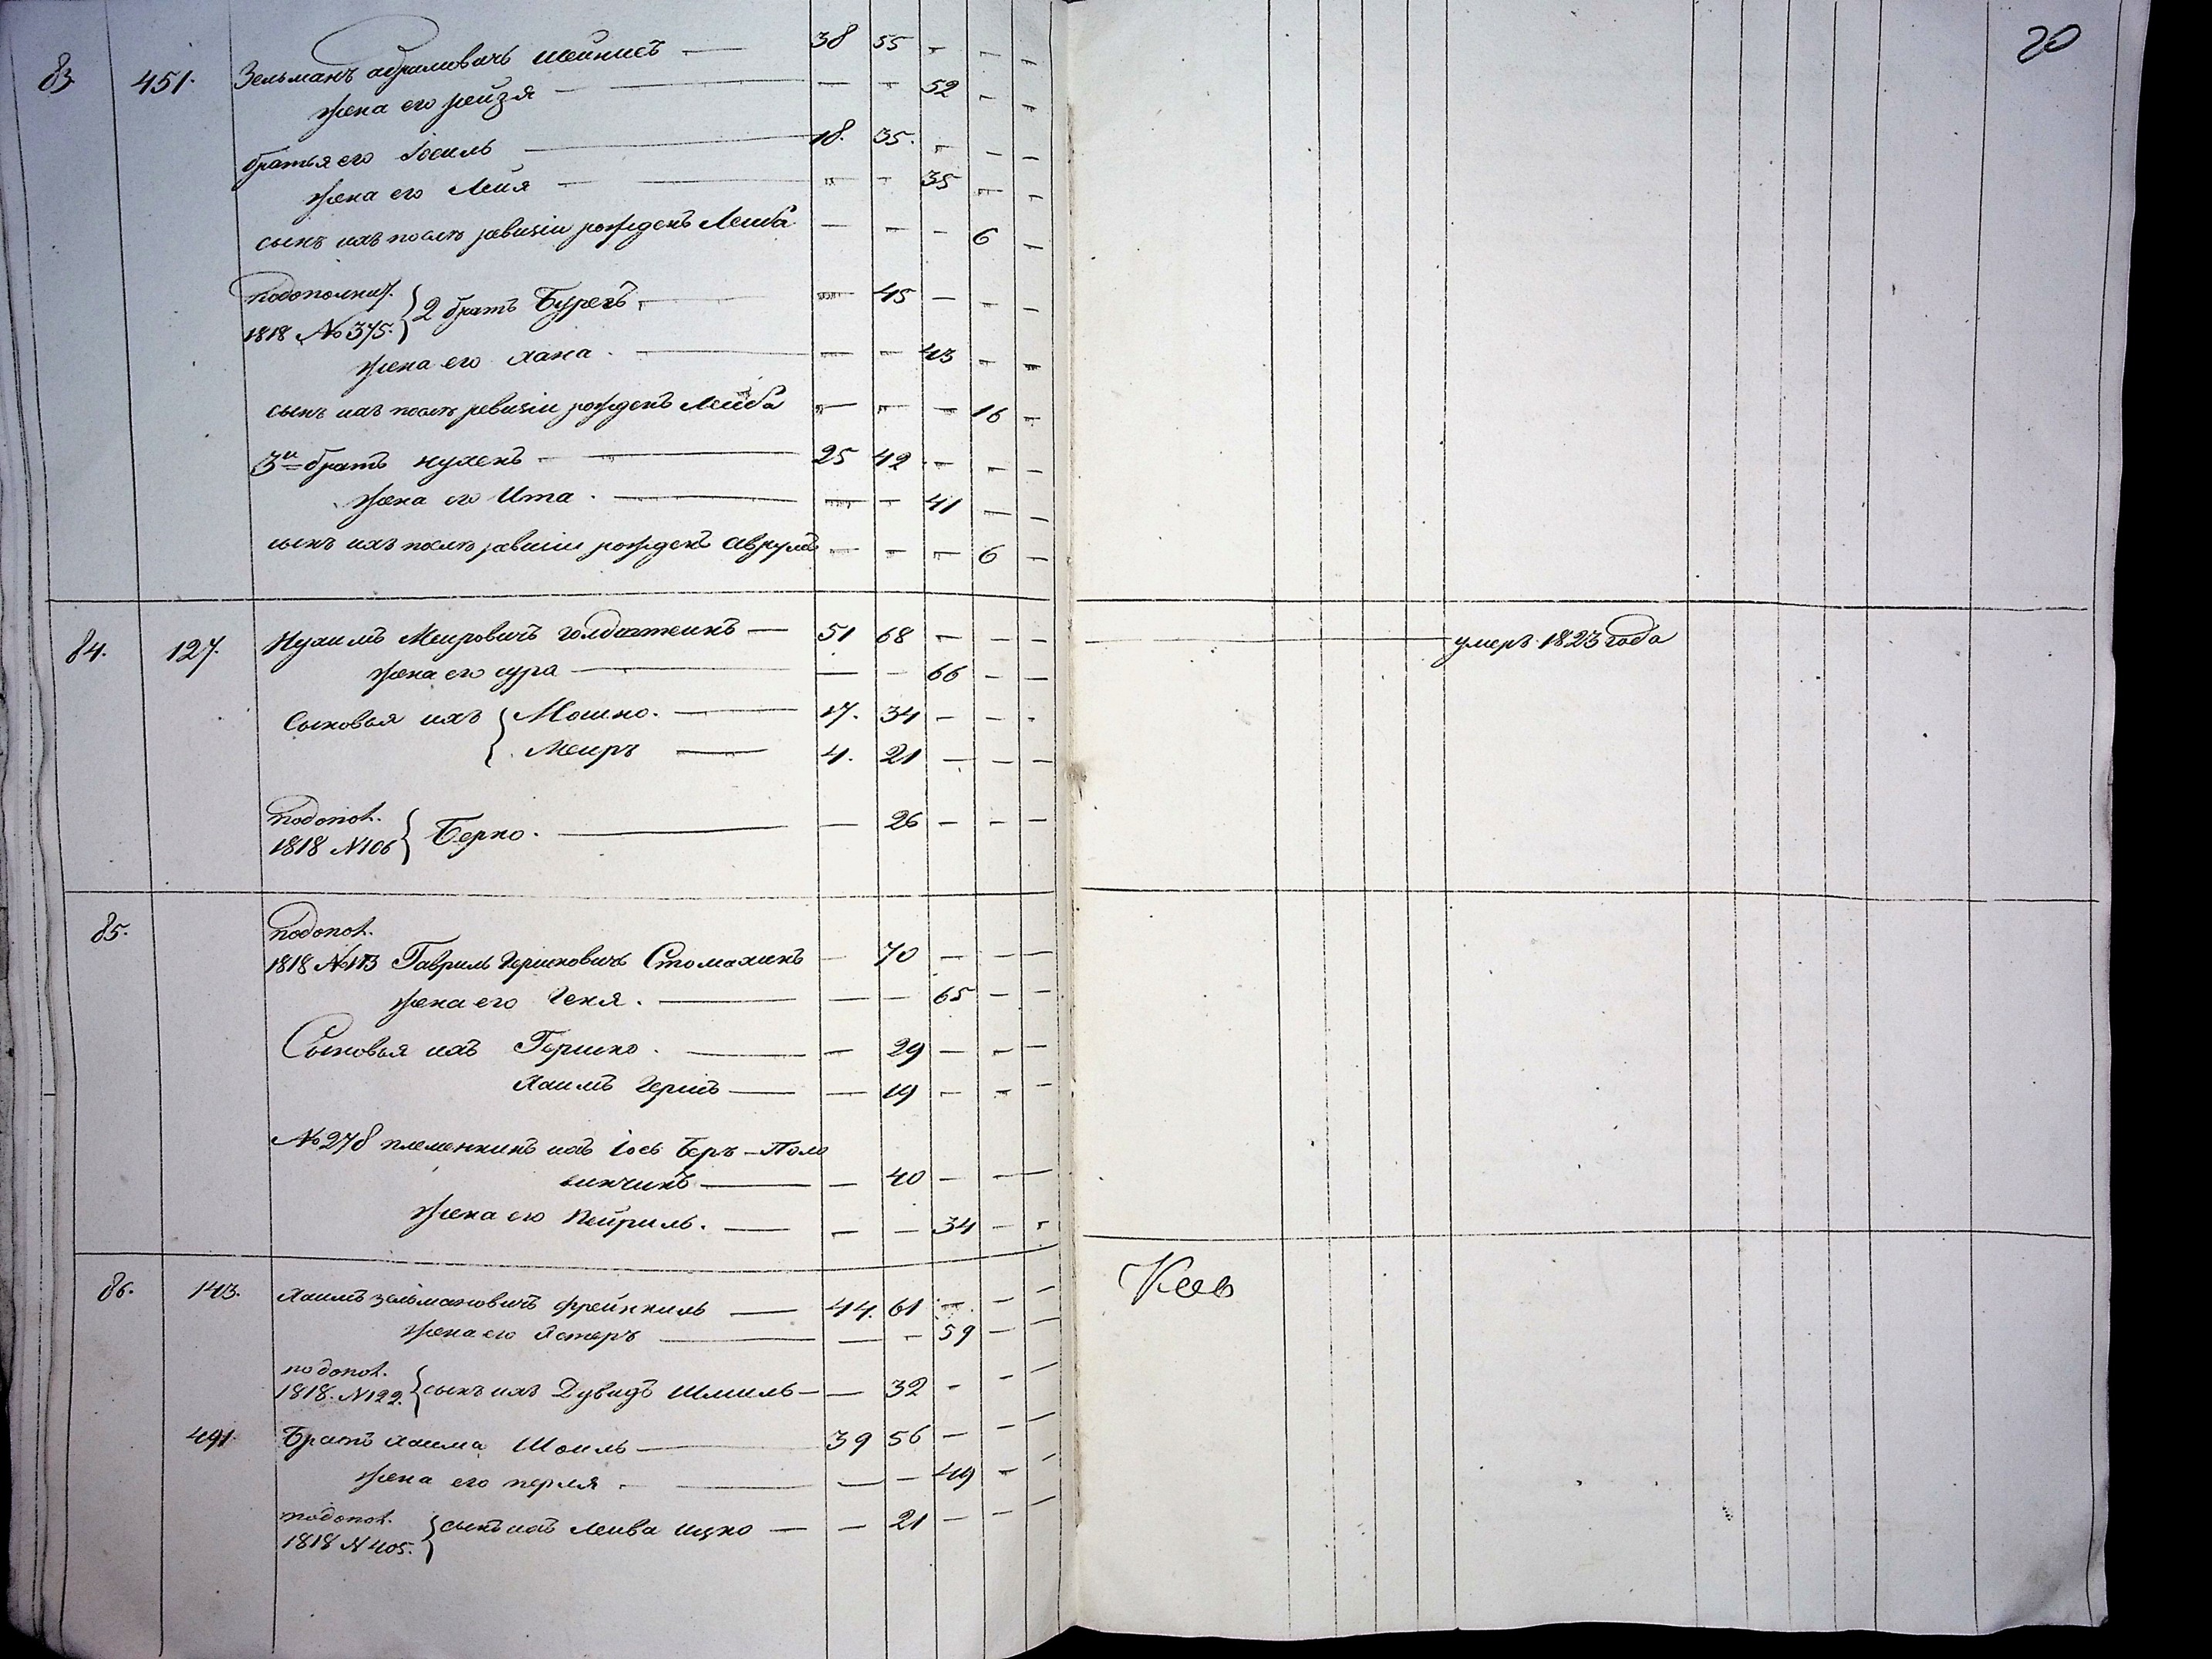 20
83 451. Зельманъ абрамовичъ шейнисъ — 38 55 — — —
жена его рейзя — — — 52 — —
братья его Іосиль — 18. 35. — — —
жена его Лея — — — 35 — —
сынъ ихъ послѣ ревизіи рожденъ Леиба — — — 6 —
подополнит.
1818 №375. } 2 братъ Бурехъ — — 45 — — —
жена его хана. — — — 43 — —
сынъ ихъ послѣ ревизіи рожденъ Леиба — — — 16 —
3й братъ нухенъ — 25 42 — — —
жена его Ита. — — — 41 — —
сынъ ихъ послѣ ревизіи рожденъ аврумъ — — — 6 —
84. 127. Нухимъ Меировичъ — 51 68 — — — — умеръ 1823 года
жена его сура — — — 66 — —
Сыновья ихъ { Мошко. — 17. 34 — — —
Меиръ — 4. 21 — — —
подопол.
1818 №106 { Берко. — — 26 — — —
85. подопол.
1818 №113 Гавриль Гершковичъ Стомахинъ — 70 — — —
жена его Геня. — — — 65 — —
Сыновья ихъ Гершко. — — 29 — — —
Хаимъ Герш — — 19 — — —
№278 племенникъ ихъ Іось Беръ — Поло
винчикъ — — 40 — — —
жена его Пейриль. — — — 34 — —
86. 143. Хаимъ зельмановичъ фрейнкиль — 44. 61 — — —
жена его Естеръ — — — 59 — —
подопол.
1818. №122. { сынъ ихъ Дувидъ Шмиль — — 32 — — —
491 Братъ хаима Шоиль — 39 56 — — —
жена его перля. — — — 49 — —
подопол.
1818 №405. { сынъ ихъ леиба ицко — — 21 — — —